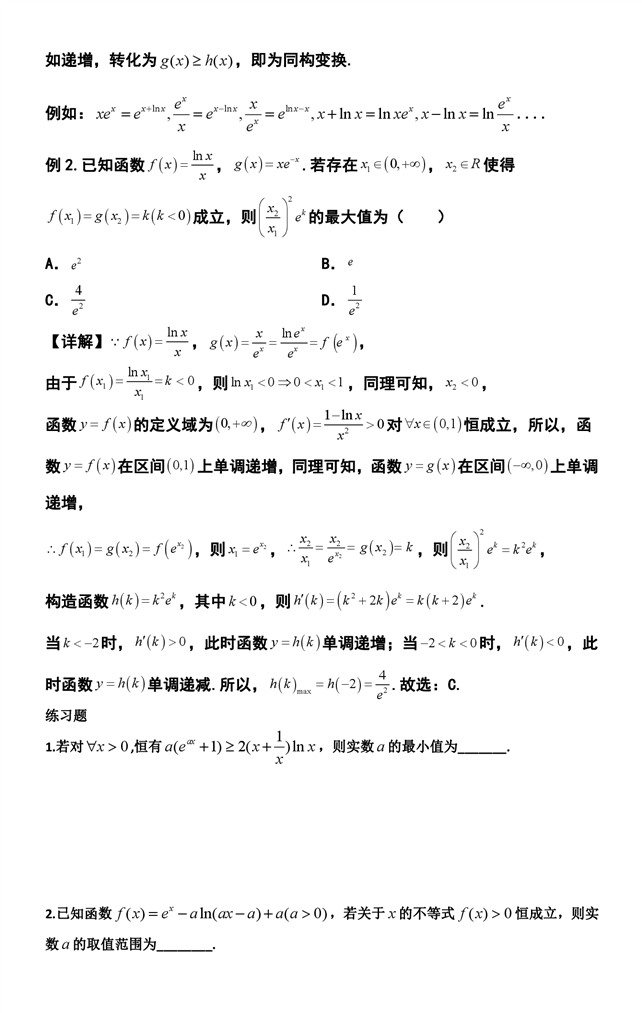 如递增，转化为 g(x) ≥ h(x)，即为同构变换.
例如：xe^x = e^{x+ln x}, \frac{e^x}{x} = e^{x−ln x}, \frac{x}{e^x} = e^{ln x−x}, x + ln x = ln xe^x, x − ln x = ln \frac{e^x}{x} ....
例 2.已知函数 f(x) = \frac{ln x}{x}，g(x) = xe^{−x}.若存在 x_1 ∈ (0,+∞)，x_2 ∈ R 使得
f(x_1) = g(x_2) = k(k < 0)成立，则(\frac{x_2}{x_1})^2 e^k 的最大值为（  ）
A．e^2 B．e
C．\frac{4}{e^2} D．\frac{1}{e^2}
【详解】∵ f(x) = \frac{ln x}{x}，g(x) = \frac{x}{e^x} = \frac{ln e^x}{e^x} = f(e^x)，
由于 f(x_1) = \frac{ln x_1}{x_1} = k < 0，则 ln x_1 < 0 ⇒ 0 < x_1 < 1，同理可知，x_2 < 0，
函数 y = f(x)的定义域为(0,+∞)，f′(x) = \frac{1−ln x}{x^2} > 0 对 ∀x ∈ (0,1)恒成立，所以，函
数 y = f(x)在区间(0,1)上单调递增，同理可知，函数 y = g(x)在区间(−∞,0)上单调
递增，
∴ f(x_1) = g(x_2) = f(e^{x_2})，则 x_1 = e^{x_2}，∴ \frac{x_2}{x_1} = \frac{x_2}{e^{x_2}} = g(x_2) = k，则(\frac{x_2}{x_1})^2 e^k = k^2e^k，
构造函数 h(k) = k^2e^k，其中 k < 0，则 h′(k) = (k^2 + 2k)e^k = k(k + 2)e^k.
当 k < −2 时，h′(k) > 0，此时函数 y = h(k)单调递增；当 −2 < k < 0 时，h′(k) < 0，此
时函数 y = h(k)单调递减.所以，h(k)_{max} = h(−2) = \frac{4}{e^2}.故选：C.
练习题
1.若对 ∀x > 0 ,恒有 a(e^{ax} + 1) ≥ 2(x + \frac{1}{x})ln x，则实数 a 的最小值为_______.
2.已知函数 f(x) = e^x − a ln(ax − a) + a(a > 0)，若关于 x 的不等式 f(x) > 0 恒成立，则实
数 a 的取值范围为________.